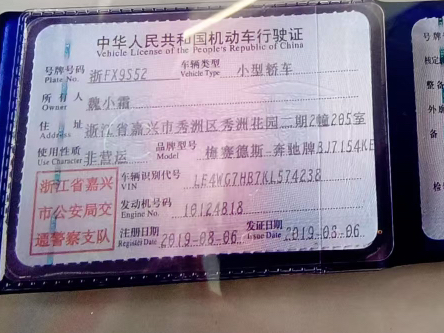 中华人民共和国机动车行驶证
Vehicle License of the People's Republic of China
号牌号码 浙FX9S52 车辆类型 小型轿车
Plate No. Vehicle Type
所有人 魏小霜
Owner
住址 浙江省嘉兴市秀洲区秀洲花园二期2幢205室
Address
使用性质 非营运 品牌型号 梅赛德斯-奔驰牌BJ7154KE
Use Character Model
浙江省嘉兴
市公安局交
通警察支队
车辆识别代号 LE4WG7HB7KL574238
VIN
发动机号码 10124818
Engine No.
注册日期 2019-08-06 发证日期 2019-08-06
Register Date Issue Date
号牌
核定
整备
外廓
检